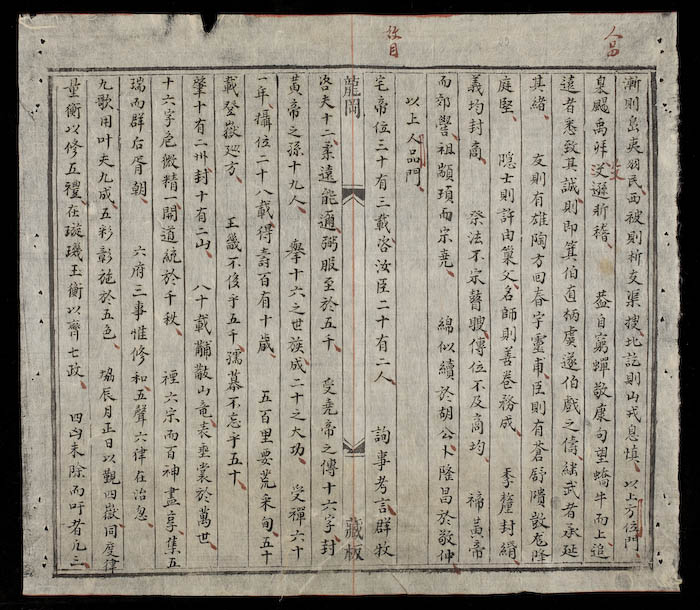 人品
数目
漸則島夷羽民西被則析支渠搜北訖則山戎息慎 以上方位門
皋颺禹拜 殳遜斨稽 蓋自窮蟬敬康句望蟜牛而上追
遠者悉致其誠則即箕伯直柄虞遂伯戲之儔繼武者承延
其緒 友則有雄陶方回春字靈甫臣則有蒼舒隤敳尨降
庭堅 隱士則許由巢父名師則善卷務成 季釐封緡
義均封商 祭法不宗瞽瞍傳位不及商均 禘黃帝
而郊嚳祖顓頊而宗堯 綿似續於胡公卜隆昌於敬仲
以上人品門
宅帝位三十有三載咨汝臣二十有二人 詢事考言群牧
龍岡 藏板
咨夫十二柔遠能邇弼服至於五千 受堯帝之傳十六字封
黃帝之孫十九人 舉十六之世族成二十之大功 受禪六十
一年攝位二十八載得壽百有十歲 五百里要荒采甸五十
載登嶽巡方 王畿不侈乎五千孺慕不忘乎五十
肇十有二州封十有二山 八十載黼黻山竜表垂裳於萬世
十六字危微精一開道統於千秋 禋六宗而百神盡享集五
瑞而群后胥朝 六府三事惟修和五聲六律在治忽
九歌用叶夫九成五彩彰施於五色 協辰月正日以觀四嶽同度律
量衡以修五禮在璇璣玉衡以齊七政 四凶未除而吁者凡三